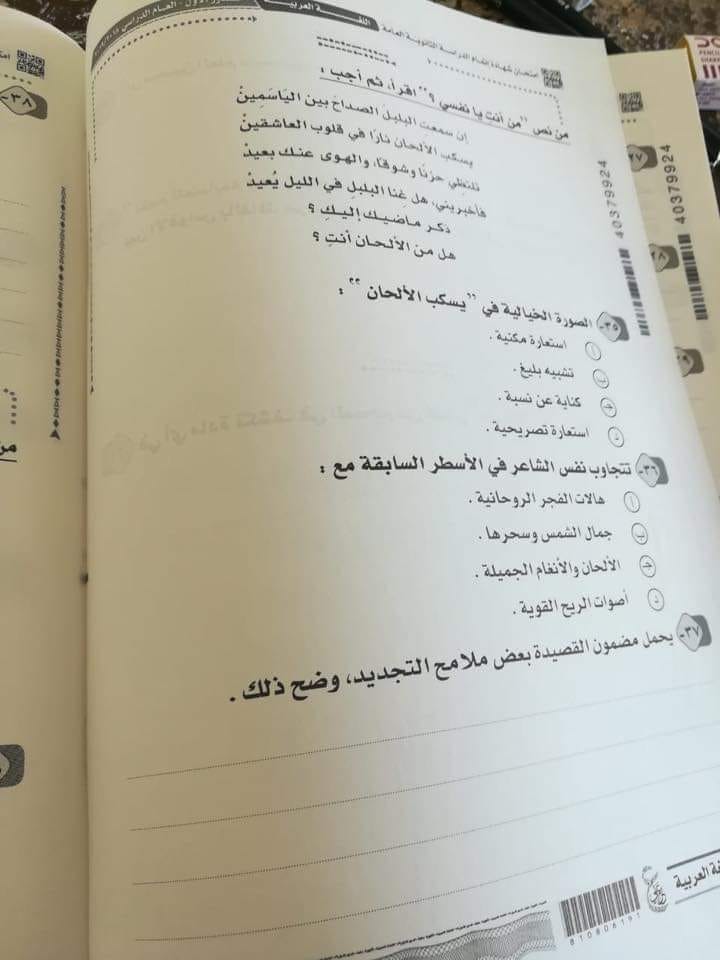 امتحان شهادة إتمام الدراسة الثانوية العامة
اللغة العربية
الدور الأول - العام الدراسي
من نص "من أنت يا نفسي ؟" اقرأ، ثم أجب :
إن سمعتِ البلبلَ الصداحَ بين الياسَمِينْ
يسكب الألحان نارًا في قلوب العاشقينْ
تلتظي حزنًا وشوقًا، والهوى عنك بعيدْ
فأخبريني، هل غنا البلبل في الليل يُعيدْ
ذكر ماضيك إليكِ ؟
هل من الألحان أنتِ ؟
٣٥- الصورة الخيالية في "يسكب الألحان" :
أ استعارة مكنية .
ب تشبيه بليغ .
ج كناية عن نسبة .
د استعارة تصريحية .
٣٦- تتجاوب نفس الشاعر في الأسطر السابقة مع :
أ هالات الفجر الروحانية .
ب جمال الشمس وسحرها .
ج الألحان والأنغام الجميلة .
د أصوات الريح القوية .
٣٧- يحمل مضمون القصيدة بعض ملامح التجديد، وضح ذلك .
العربية
810806191
40379924
40379924
٣٨-
من